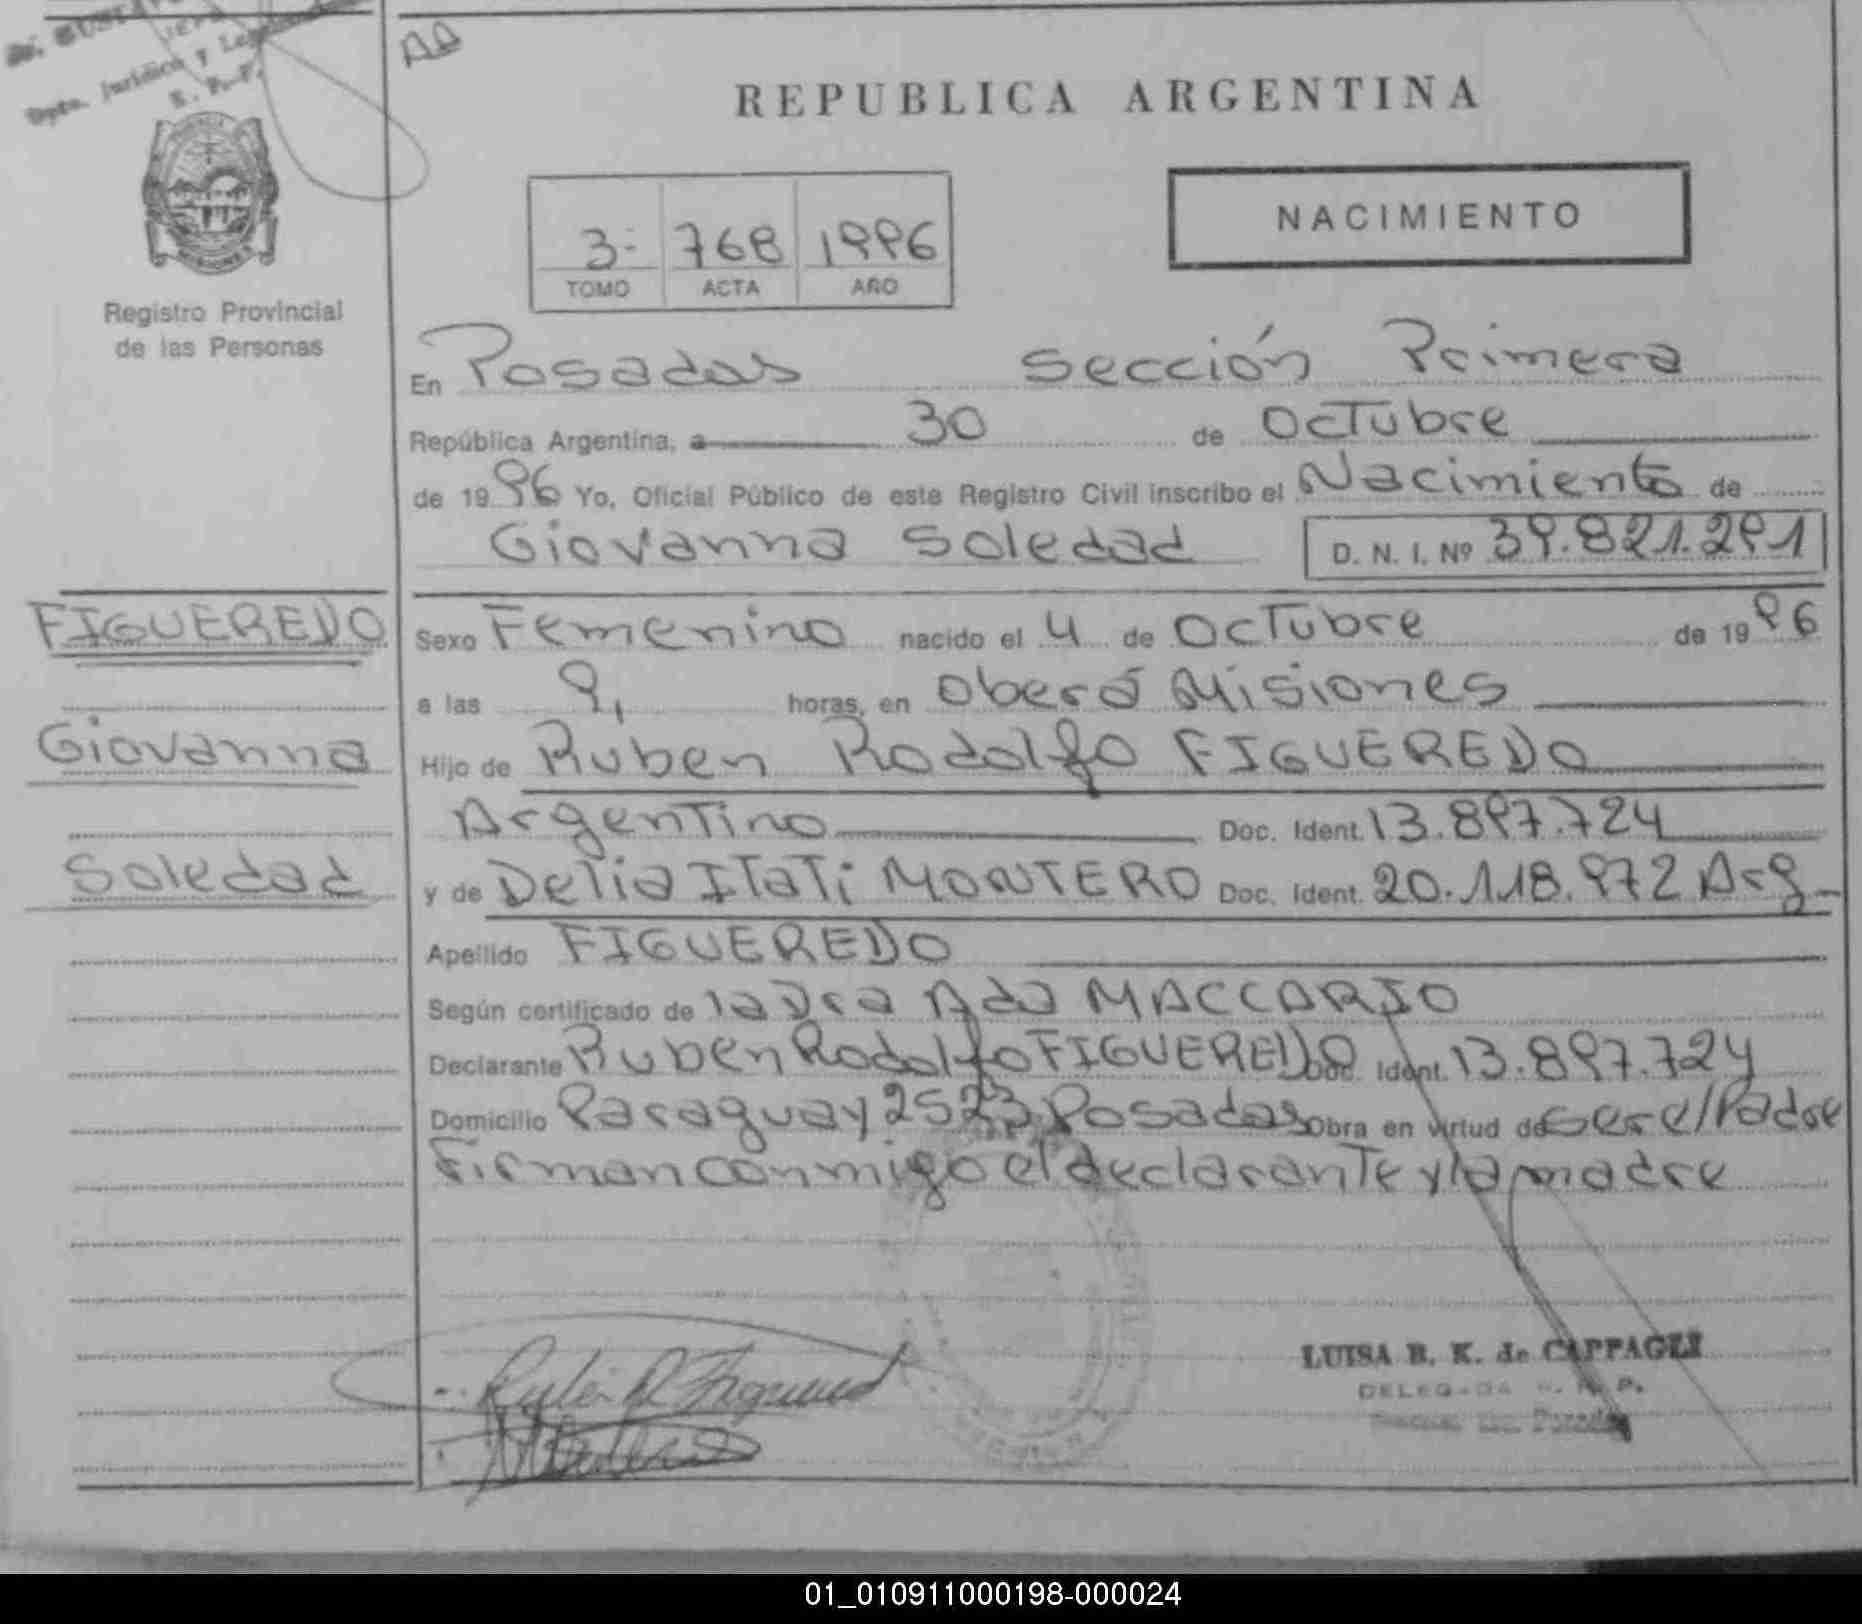 Dpto. Jurídica y
R. P. P.
AA
REPUBLICA ARGENTINA
NACIMIENTO
3- 768 1996
TOMO ACTA AÑO
Registro Provincial
de las Personas
En Posadas Sección Primera
República Argentina, a 30 de Octubre
de 1996 Yo, Oficial Público de este Registro Civil inscribo el Nacimiento de
Giovanna Soledad D. N. I. Nº 39.821.291
FIGUEREDO
Giovanna
Soledad
Sexo Femenino nacido el 4 de Octubre de 1996
a las 9, horas, en Oberá Misiones
Hijo de Ruben Rodolfo FIGUEREDO
Argentino Doc. Ident. 13.897.724
y de Delia ITaTi MONTERO Doc. Ident. 20.118.972 Arg
Apellido FIGUEREDO
Según certificado de la Dra Ada MACCARIO
Declarante Ruben Rodolfo FIGUEREDO Doc. Ident. 13.897.724
Domicilio Paraguay 2523 Posadas Obra en virtud de Ser el Padre
Firman conmigo el declarante y la madre
Rubén R Figueredo
LUISA B. K. de CAPPAGLI
DELEGADA R. P. P.
Posadas
01_010911000198-000024